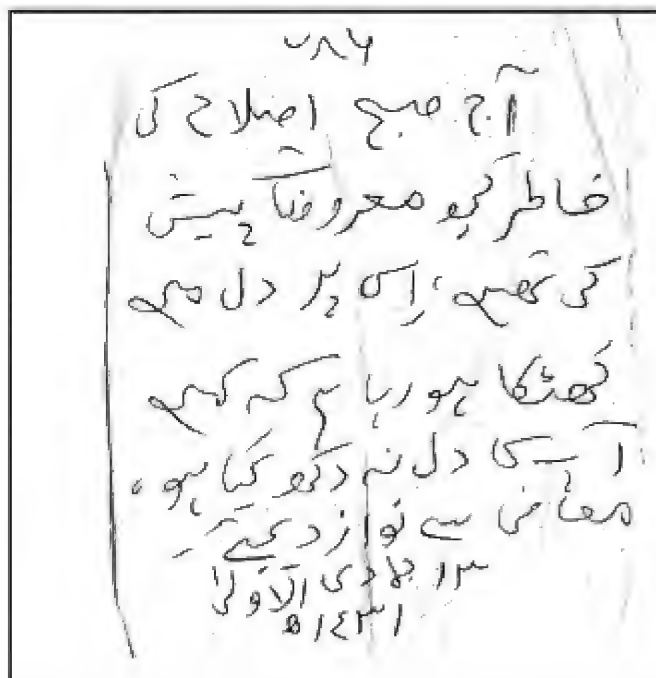 ۷۸۶
آج صبح اِصلاح کی
خاطر کچھ معروضات پیش
کی تھیں، اِس پر دل میں
کھٹکا ہو رہا ہے کہ کہیں
آپ کا دل نہ دکھ گیا ہو،
معافی سے نواز دیجئے
۱۳ جمادی الاولیٰ
۱۴۳۱ھ